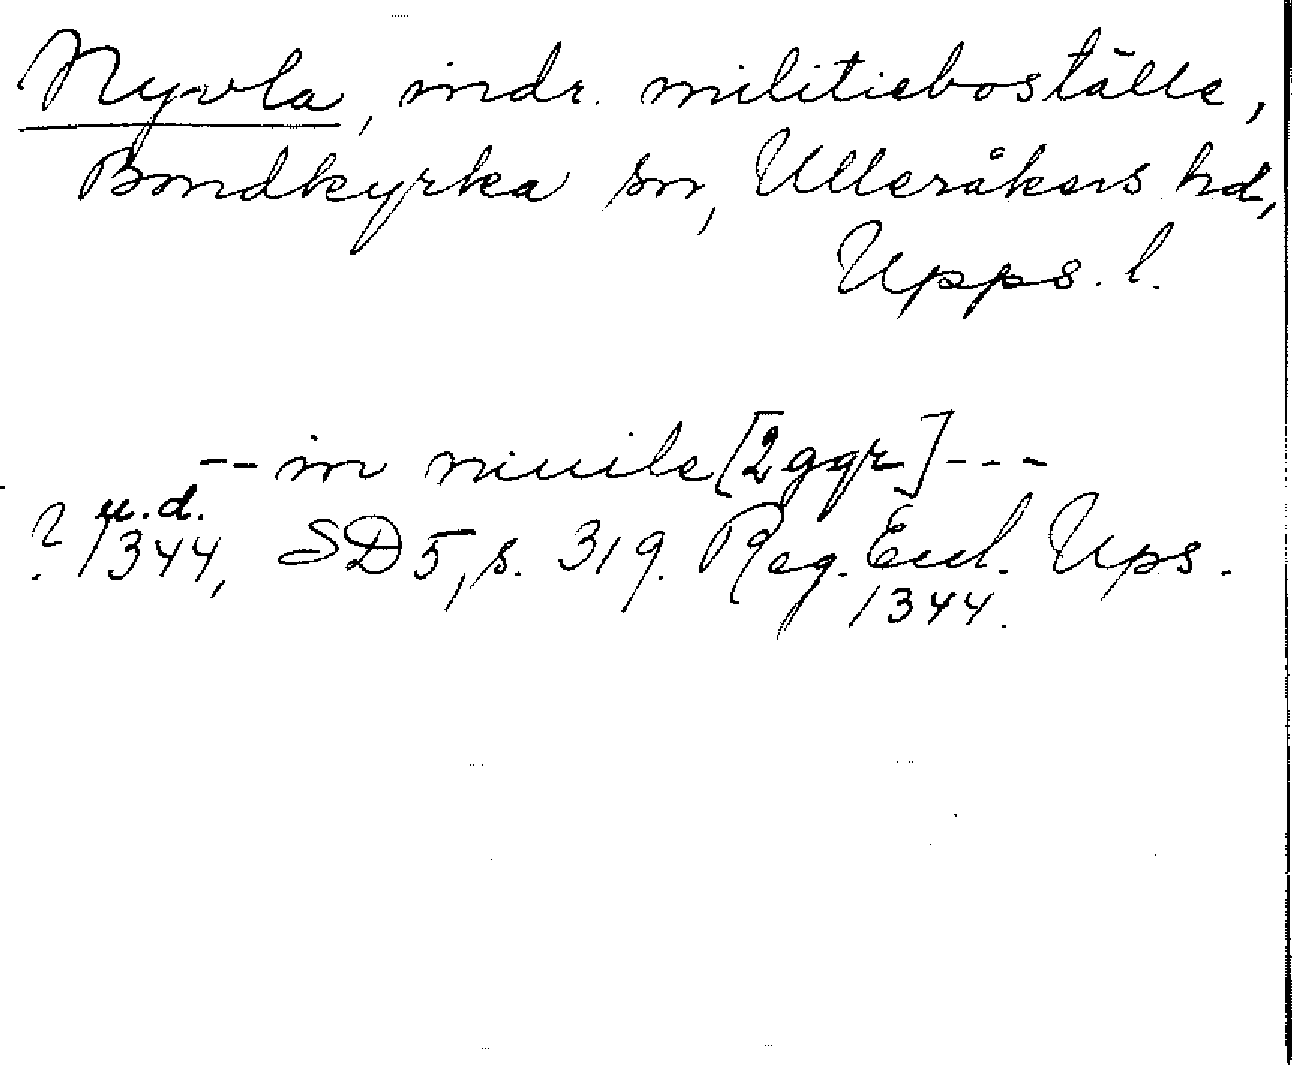 Nyvla, indr. militieboställe,
Bondkyrka sn, Ulleråkers hd,
Upps. l.
-- in niuile [2 ggr] ---
u.d.
? 1344, SD 5, s. 319. Reg. Eccl. Ups.
1344.